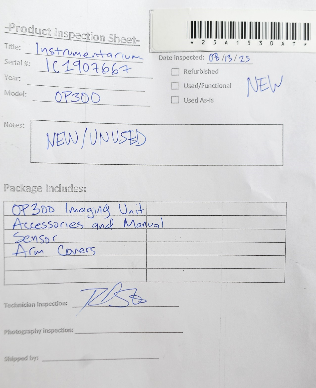 -Product Inspection Sheet-
Title: Instrumentarium
Serial #: IC1907667
Year:
Model: OP300
Date Inspected: 08/13/25
Refurbished
Used/Functional
Used As-Is
NEW
Notes:
NEW/UNUSED
Package Includes:
OP300 Imaging Unit
Accessories and Manual
Sensor
Arm Covers
Technician Inspection:
Photography Inspection:
Shipped by: